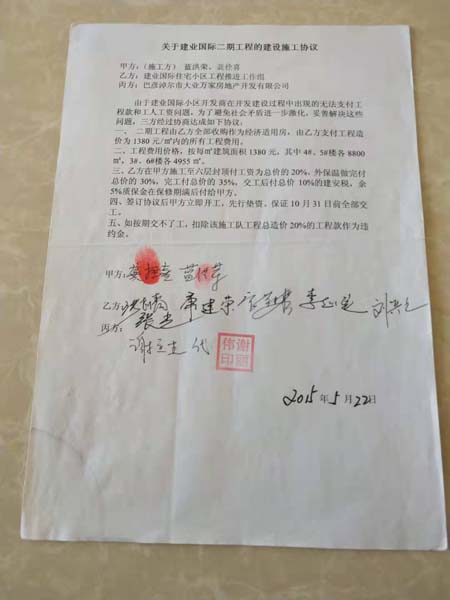 关于建业国际二期工程的建设施工协议
甲方：（施工方） 蓝洪荣、裴拴喜
乙方：建业国际住宅小区工程推进工作组
丙方：巴彦淖尔市大业万家房地产开发有限公司
由于建业国际小区开发商在开发建设过程中出现的无法支付工
程款和工人工资问题，为了避免社会矛盾进一步激化，妥善解决这些
问题，三方经过协商达成如下协议：
一、 二期工程由乙方全部收购作为经济适用房，由乙方支付工程造
价为1380元/㎡内的所有工程费用。
二、工程费用价格，按每㎡建筑面积1380元，其中4#、5#楼各8800
㎡，3#、6#楼各4955㎡。
三、乙方在甲方施工至六层封顶付工资为总价的20%，外保温做完付
总价的30%，完工付总价的35%，交工后付总价10%的建安税，余
5%质保金在保修期满后付给甲方。
四、签订协议后甲方立即开工，先行垫资。保证10月31日前全部交
工。
五、如按期交不了工，扣除该施工队工程总造价20%的工程款作为违
约金。
甲方：
乙方：
丙方：
代
2015年5月22日